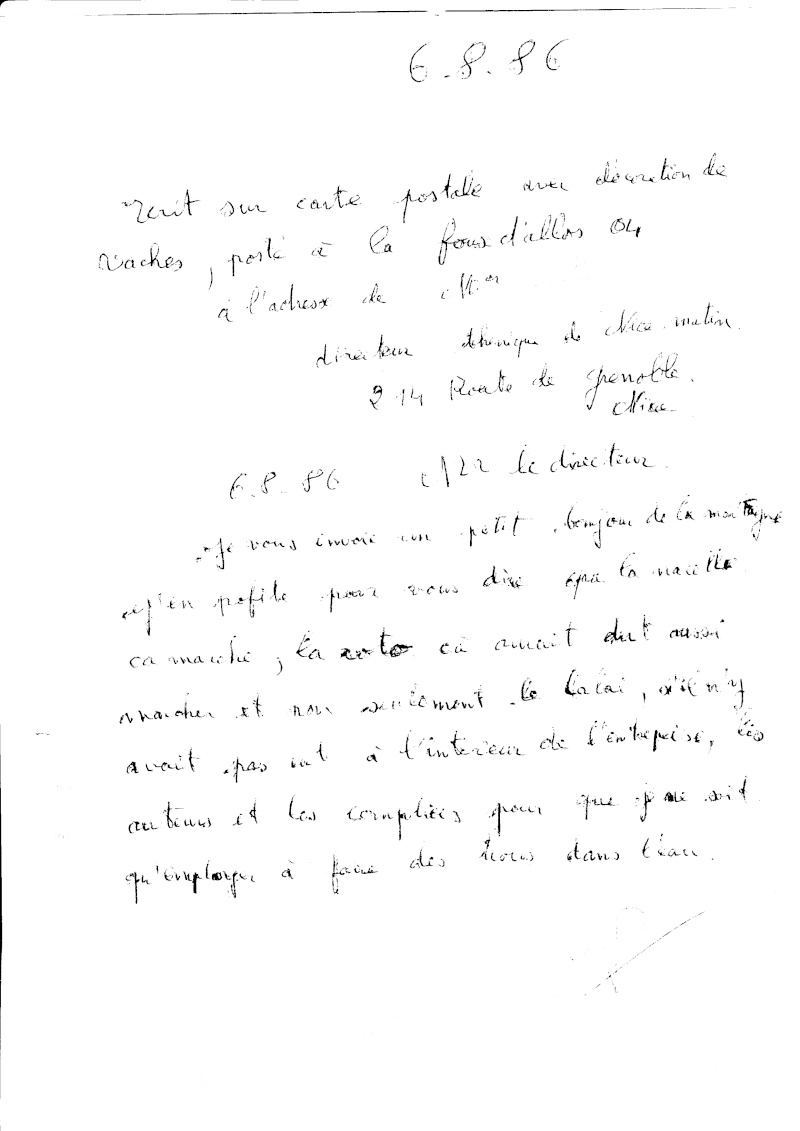 6.8.86
Ecrit sur carte postale avec décoration de
vaches, posté à la foux d'allos 04
à l'adresse de Mr
directeur thenique de Nice matin.
214 Route de grenoble.
Nice
6.8.86 le directeur.
Je vous envoie un petit bonjour de la montagne
j'en pofite pour vous dire que la nacelle
ca marche, la roto ca aurait dut aussi
marcher et non seulement le balai, s'il n'y
avait pas eut à l'interieur de l'entrepise, les
auteurs et les complices pour que je ne soit
qu'employer à faire des trous dans l'eau.